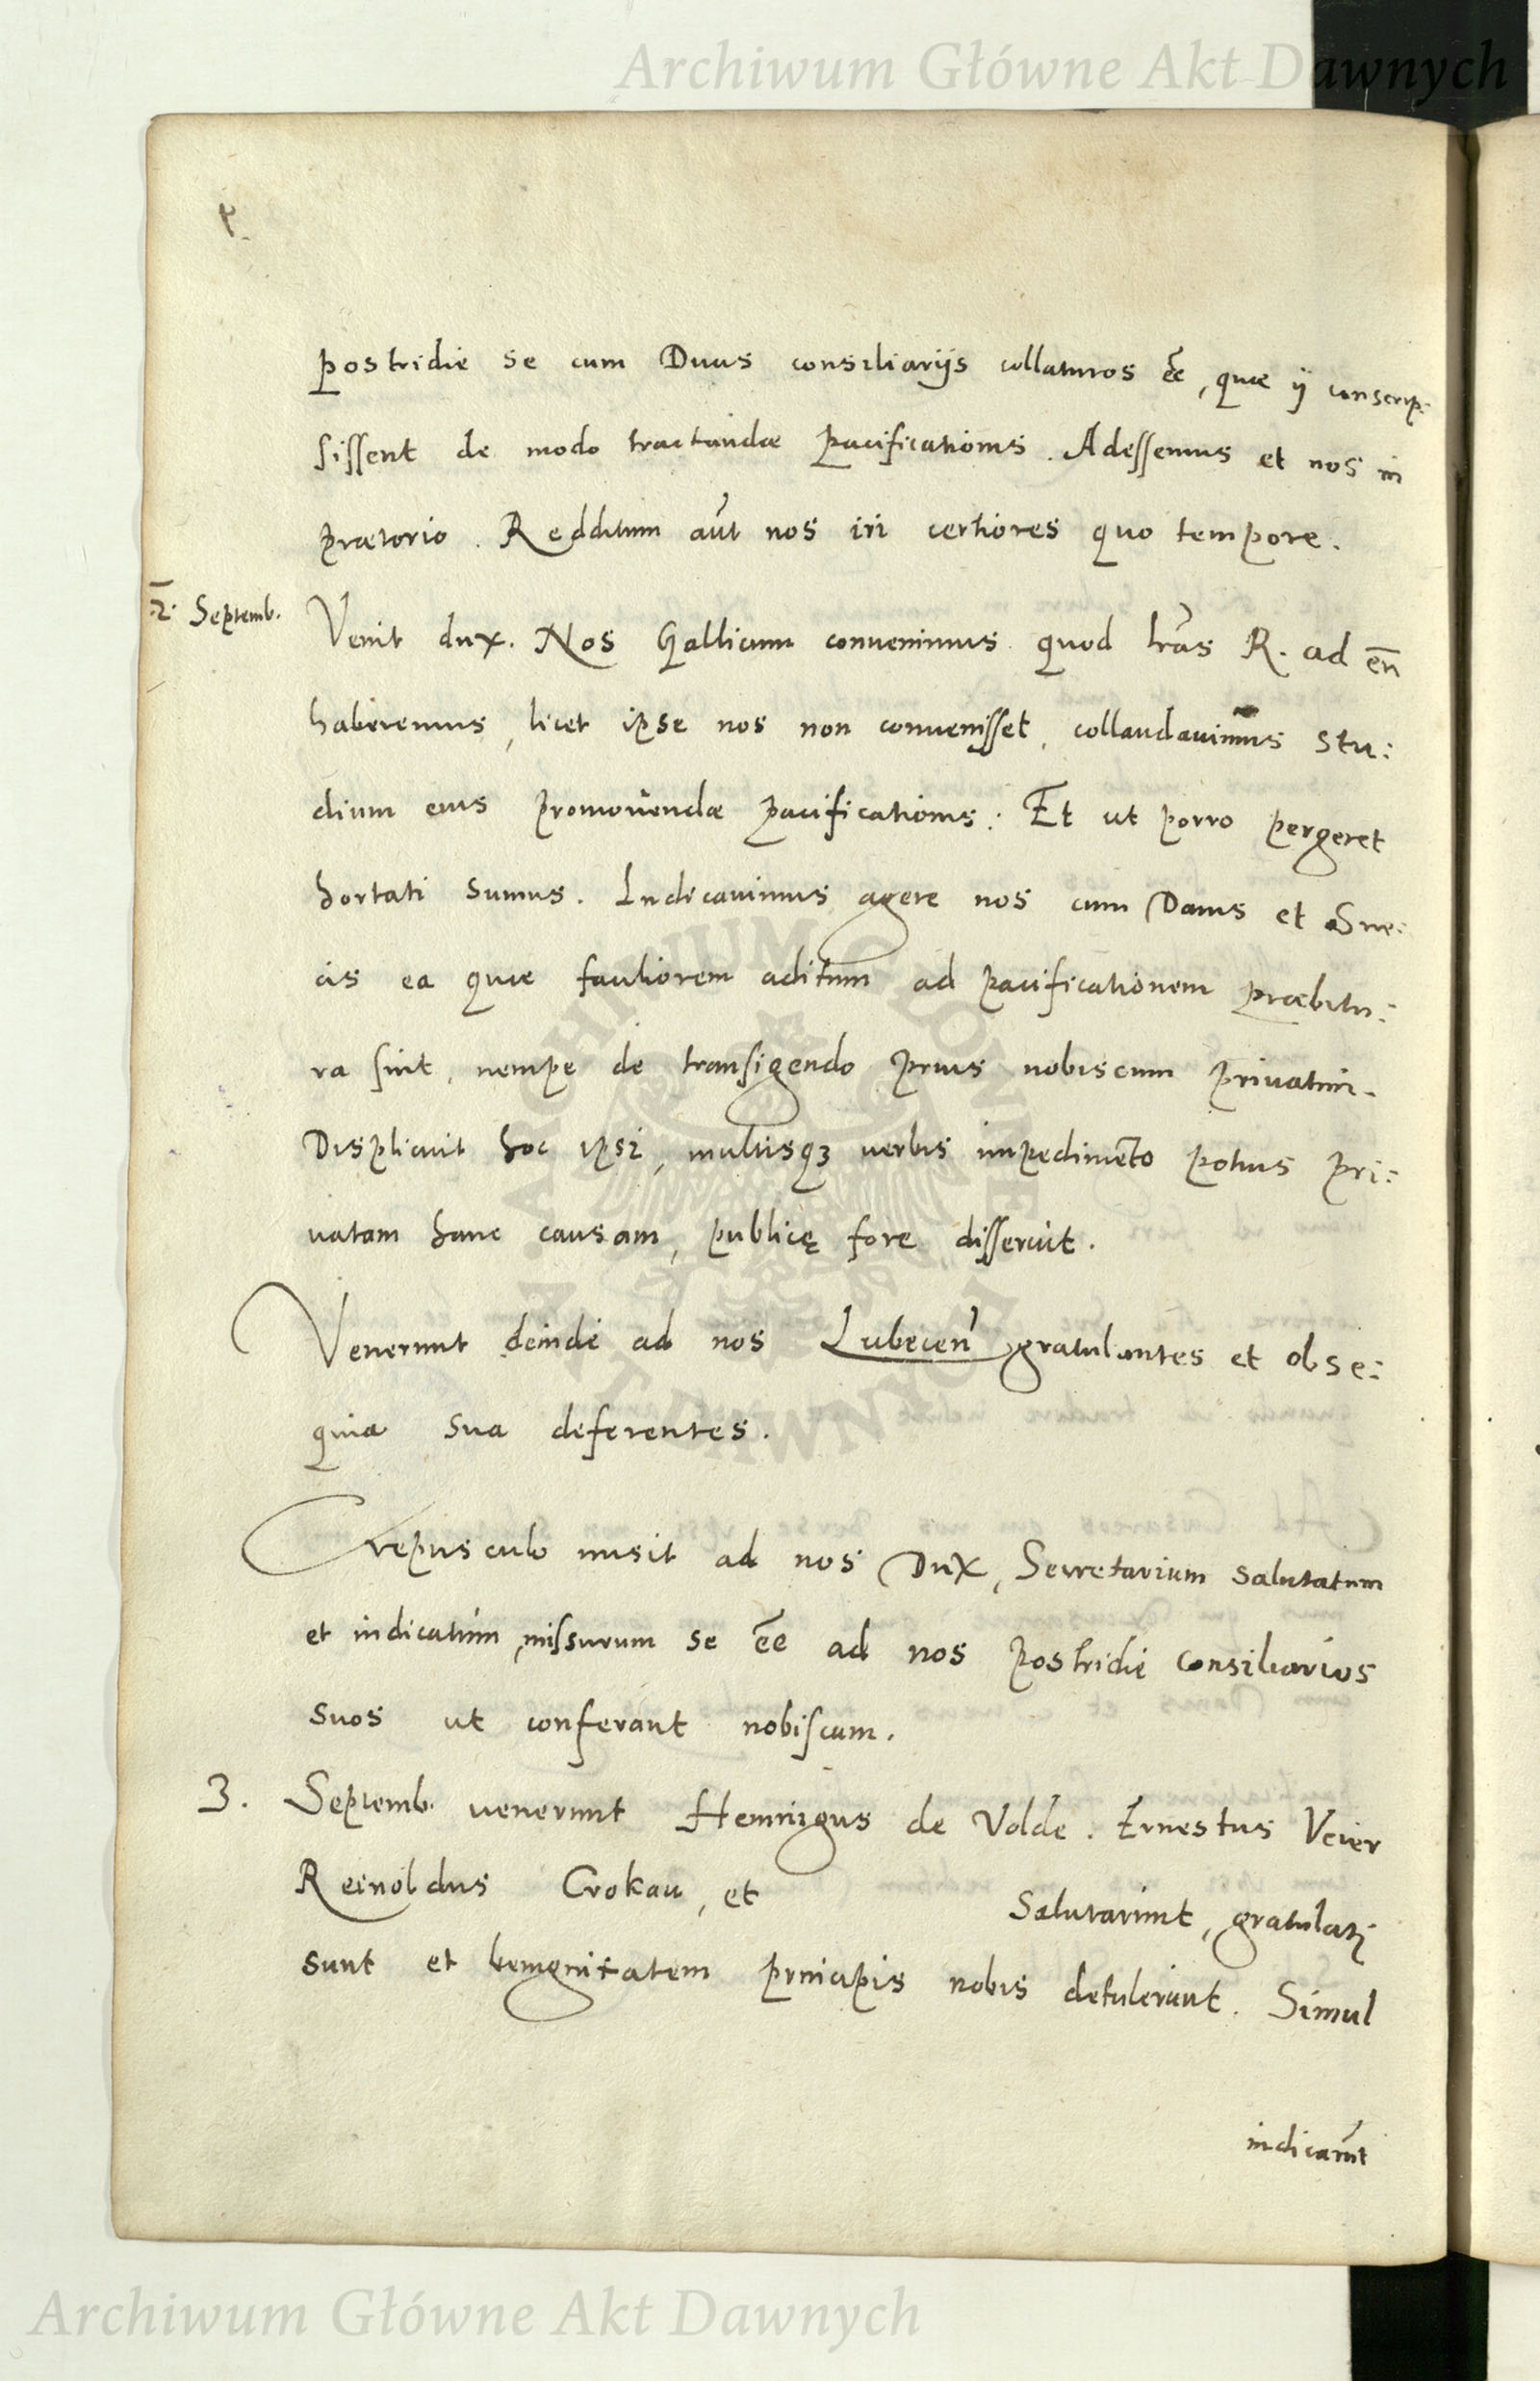 Archiwum Główne Akt Dawnych
postridie se cum Ducis consiliarijs collaturos ēē, quae ij conscrip:
sissent de modo tractandae pacificationis. Adessemus et nos in
praetorio. Redditum aūt nos iri certiores quo tempore.
2. Septemb.
Venit dux. Nos Gallicum convenimus quod lr̄as R. ad eū
haberemus, licet ipse nos non convenisset, collaudavimus stu:
dium eius promovendae pacificationis: Et ut porro pergeret
hortati sumus. Indicavimus agere nos cum Danis et Sue:
cis ea quae faciliorem aditum ad pacificationem praebitu:
ra sint, nempe de transigendo prius nobiscum privatim.
Displicuit hoc ipsi, multisq3 verbis impedimēto potius pri:
vatam hanc causam, publicę fore disseruit.
Venerunt deinde ad nos Lubecen̄ gratulantes et obse:
quia sua deferentes.
Crepusculo misit ad nos Dux, Secretarium salutatum
et indicatum, missurum se ēē ad nos postridie consiliarios
suos ut conferant nobiscum.
3. Septemb. venerunt Henningus de Volde. Ernestus Veier
Reinoldus Crokau, et salutarunt, gratulati
sunt et benignitatem principis nobis detulerunt. Simul
indicarūt
Archiwum Główne Akt Dawnych